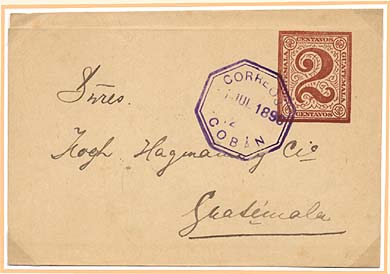 CENTAVOS
GUATEMALA
2
CENTAVOS
CORREOS
JUL 189
2
COBAN
Sres.
Koch Hagmann y Cia
Guatemala